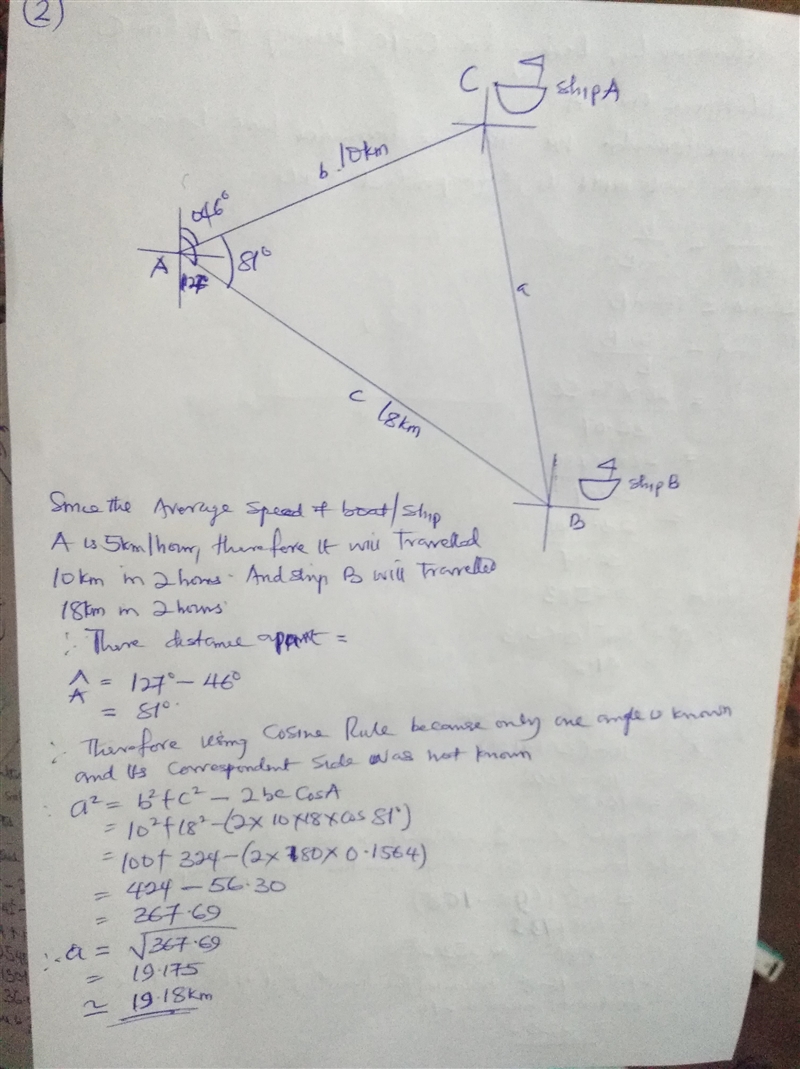 (2)
C
ship A
b 10km
046°
A
81°
127
a
c 18km
ship B
B
Since the Average Speed of boat/ship
A is 5km/hour, therefore it will Travelled
10km in 2 hours. And ship B will Travelled
18km in 2 hours
∴ There distance apart =
Â = 127° - 46°
= 81°.
∴ Therefore using Cosine Rule because only one angle is known
and its correspondent side was not known
∴ a² = b² + c² - 2bc CosA
= 10² + 18² - (2 × 10 × 18 × cos 81°)
= 100 + 324 - (2 × 180 × 0.1564)
= 424 - 56.30
= 367.69
∴ a = √367.69
= 19.175
≃ 19.18km